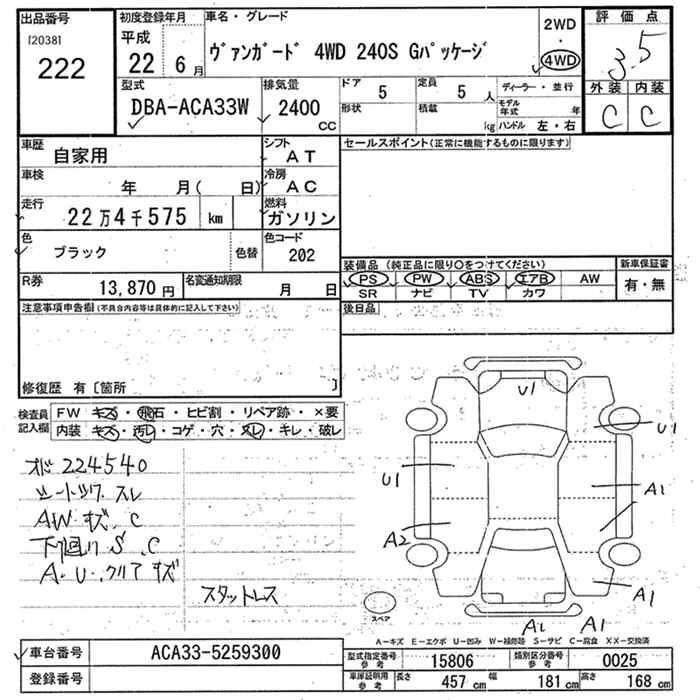 出品番号
[2038]
222
初度登録年月
平成
22 6月
車名・グレード
ヴァンガード 4WD 240S Gパッケージ
2WD
・
4WD
評価点
3.5
外装 内装
C C
型式
DBA-ACA33W
排気量
2400
CC
ドア
5
定員
5人
形状
積載
kg
ディーラー・並行
モデル年式
年
ハンドル 左・右
車歴
自家用
シフト
AT
セールスポイント(正常に機能するものに限ります)
車検
年 月( 日)
冷房
AC
走行
22万4千575 km
燃料
ガソリン
色
ブラック
色替
色コード
202
装備品(純正品に限り○をつけてください)
新車保証書
PS PW ABS エアB AW
有・無
SR ナビ TV カワ
R券
13,870円
名変通知期限
月 日
注意事項申告欄(不具合内容等は具体的に記入して下さい)
後日品
修復歴 有〔箇所 〕
検査員記入欄
FW キズ・飛石・ヒビ割・リペア跡・×要
内装 キズ・汚レ・コゲ・穴・スレ・キレ・破レ
オド 224540
シートツワ スレ
AW キズ.C
下回り S.C
A.U.クリア キズ
スタットレス
U1
U1
U1
A1
A2
A1
A1
A1
スペア
A-キズ E-エクボ U-凹み W-補修跡 S-サビ C-腐食 XX-交換済
車台番号
ACA33-5259300
登録番号
型式指定番号
参考
15806
類別区分番号
参考
0025
車庫証明用
参考
長さ
457 cm
幅
181 cm
高さ
168 cm